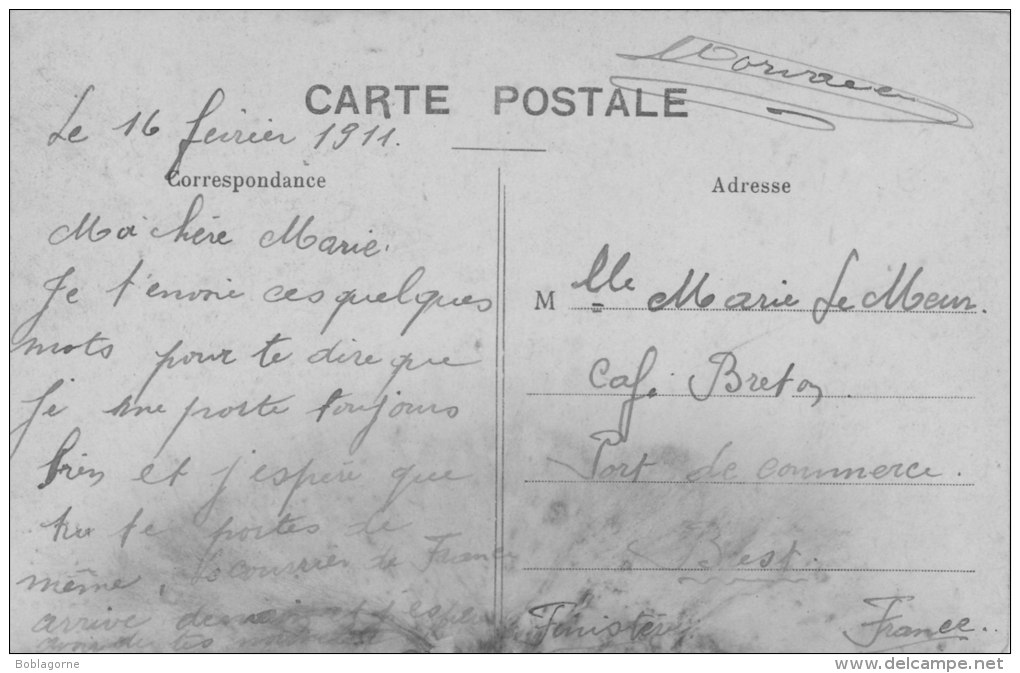 CARTE POSTALE
Le 16 fevrier 1911.
Correspondance
Ma chère Marie.
Je t'envoie ces quelques
mots pour te dire que
je me porte toujours
bien et j'espère que
tu te portes de
même, le courrier de France
arrive demain et j'espère
avoir de tes
Adresse
M lle Marie Le Meur.
Café Breton
Port de commerce.
Brest.
Finistère France.
Boblagorne
www.delcampe.net